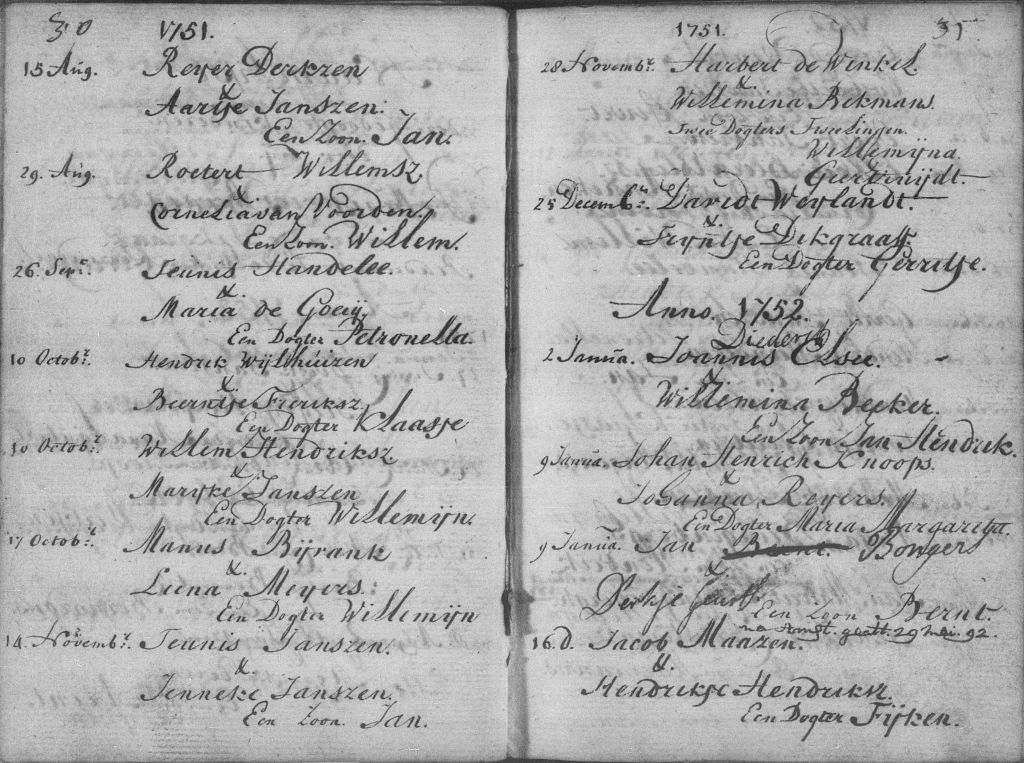 30 1751.
15 Aug. Reyer Derkzen
&
Aartje Janszen.
Een Zoon. Jan.
29. Aug. Roetert Willemsz
&
Cornelia van Voorden.
Een Zoon. Willem.
26. Sepr. Teunis Handelee.
&.
Maria de Goeij.
Een Dogter Petronella.
10 Octobr. Hendrik Wijlhuizen
&.
Beerntje Freriksz.
Een Dogter Klaasje
10 Octobr. Willem Hendriksz
&.
Maryke Janszen
Een Dogter Willemijn.
17 Octobr. Manus Bijrank
&.
Liena Meyers.
Een Dogter Willemijn
14. Novembr. Teunis Janszen.
&.
Jenneke Janszen.
Een Zoon. Jan.
1751. 35
28 Novembr. Harbert de Winkel.
&.
Willemina Bekmans.
Twee Dogters Tweelingen.
Willemijna.
Geertruijdt.
25 Decembr. Davidt Weylandt.
&.
Fryntje Dikgraaff.
Een Dogter Gerritje.
Anno. 1752.
Diederik
2 Janua. Joannis Elsee.
&
Willemina Becker.
Een Zoon Jan Hendrik.
9 Janua. Johan Henrich Knoops.
&
Johanna Reyers.
Een Dogter Maria Margaretha.
9 Janua. Jan Bernt. Bonger
&
Derkje
Een Zoon Bernt.
29 92.
16. d. Jacob Maazen.
&.
Hendrikje Hendriksz.
Een Dogter Fijken.